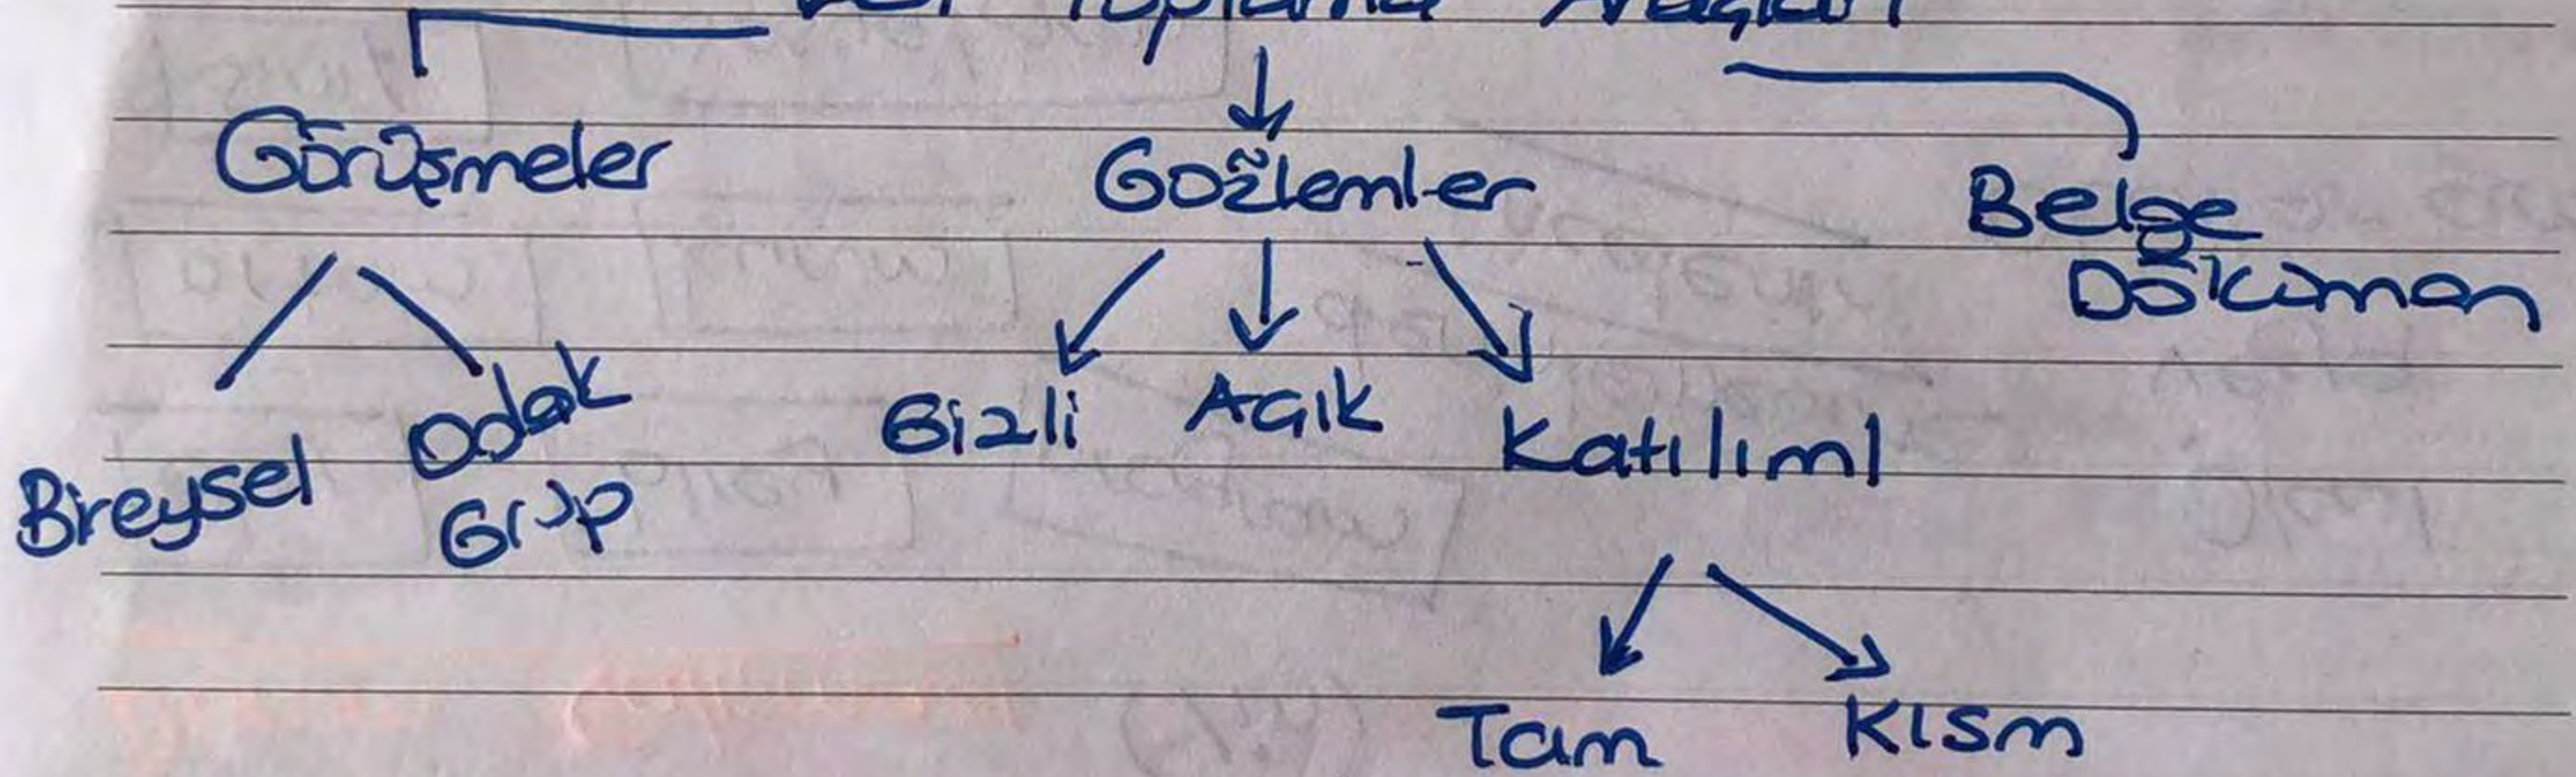 Toplama Araçları
Görüşmeler
Gözlemler
Belge
Döküman
Bireysel
Odak
Grup
Gizli
Açık
Katılıml
Tam
Kısm